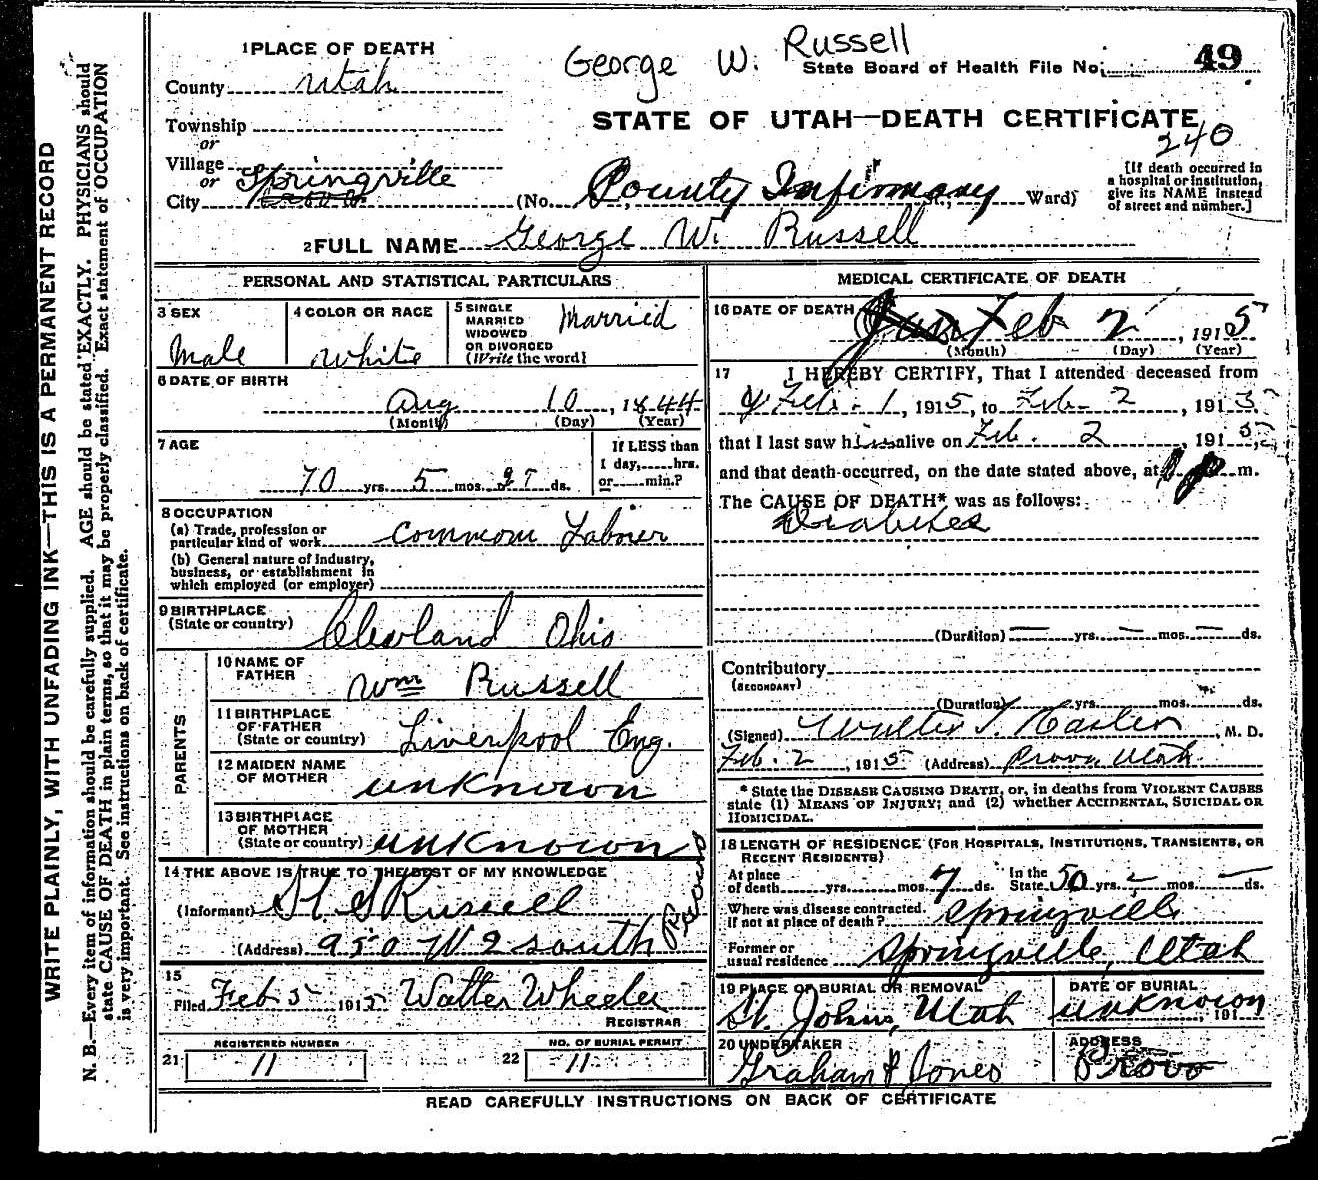 WRITE PLAINLY, WITH UNFADING INK—THIS IS A PERMANENT RECORD
N. B.—Every item of information should be carefully supplied. AGE should be stated EXACTLY. PHYSICIANS should
state CAUSE OF DEATH in plain terms, so that it may be properly classified. Exact statement of OCCUPATION
is very important. See instructions on back of certificate.
George W. Russell
1 PLACE OF DEATH
State Board of Health File No. 49
County Utah
STATE OF UTAH—DEATH CERTIFICATE
240
Township
or
Village
or
City Springville (No. County Infirmary Ward)
[If death occurred in
a hospital or institution,
give its NAME instead
of street and number.]
2 FULL NAME George W. Russell
PERSONAL AND STATISTICAL PARTICULARS
3 SEX Male
4 COLOR OR RACE White
5 SINGLE
MARRIED
WIDOWED
OR DIVORCED
(Write the word) Married
6 DATE OF BIRTH
Aug 10, 1844
(Month) (Day) (Year)
7 AGE
70 yrs. 5 mos. ds.
If LESS than
1 day, hrs.
or min.?
8 OCCUPATION
(a) Trade, profession or
particular kind of work Common Laborer
(b) General nature of Industry,
business, or establishment in
which employed (or employer)
9 BIRTHPLACE
(State or country) Clevland Ohio
PARENTS
10 NAME OF
FATHER Wm Russell
11 BIRTHPLACE
OF FATHER
(State or country) Liverpool Eng.
12 MAIDEN NAME
OF MOTHER unknown
13 BIRTHPLACE
OF MOTHER
(State or country) unknown
14 THE ABOVE IS TRUE TO THE BEST OF MY KNOWLEDGE
(Informant) Russell
(Address) 950 W 2 South Provo
15
Filed Feb 5 1915 Walter Wheeler
REGISTRAR
21 REGISTERED NUMBER 11
22 NO. OF BURIAL PERMIT 11
MEDICAL CERTIFICATE OF DEATH
16 DATE OF DEATH Feb 2, 1915
(Month) (Day) (Year)
17 I HEREBY CERTIFY, That I attended deceased from
Feb. 1, 1915, to Feb. 2, 1915
that I last saw him alive on Feb. 2, 1915,
and that death occurred, on the date stated above, at m.
The CAUSE OF DEATH* was as follows:
Diabetes
(Duration) — yrs. — mos. — ds.
Contributory
(SECONDARY)
(Duration) yrs. mos. ds.
(Signed) Walter T. Hasler, M. D.
Feb. 2, 1915 (Address) Provo, Utah
* State the DISEASE CAUSING DEATH, or, in deaths from VIOLENT CAUSES
state (1) MEANS OF INJURY; and (2) whether ACCIDENTAL, SUICIDAL OR
HOMICIDAL.
18 LENGTH OF RESIDENCE (FOR HOSPITALS, INSTITUTIONS, TRANSIENTS, OR
RECENT RESIDENTS)
At place
of death yrs. mos. 7 ds. In the
State 50 yrs. — mos. — ds.
Where was disease contracted,
if not at place of death? Springville
Former or
usual residence Springville, Utah
19 PLACE OF BURIAL OR REMOVAL
St. Johns, Utah
DATE OF BURIAL
unknown, 191
20 UNDERTAKER
Graham & Jones
ADDRESS
Provo
READ CAREFULLY INSTRUCTIONS ON BACK OF CERTIFICATE